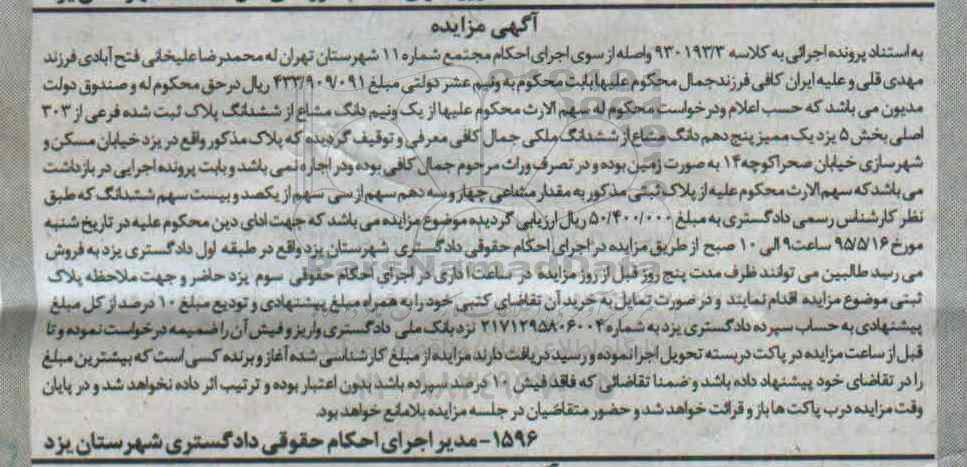 آگهی مزایده
به استناد پرونده اجرائی به کلاسه ۹۳۰۱۹۳/۳ واصله از سوی اجرای احکام مجتمع شماره ۱۱ شهرستان تهران له محمدرضا علیخانی فتح آبادی فرزند
مهدی قلی و علیه ایران کافی فرزند جمال محکوم علیها بابت محکوم به و نیم عشر دولتی مبلغ ۴۳۳/۹۰۹/۰۹۱ ریال در حق محکوم له و صندوق دولت
مدیون می باشد که حسب اعلام و درخواست محکوم له سهم الارث محکوم علیها از یک و نیم دانگ مشاع از ششدانگ پلاک ثبت شده فرعی از ۳۰۳
اصلی بخش ۵ یزد یک ممیز پنج دهم دانگ مشاع از ششدانگ ملکی جمال کافی معرفی و توقیف گردیده که پلاک مذکور واقع در یزد خیابان مسکن و
شهرسازی خیابان صحرا کوچه ۱۴ به صورت زمین بوده و در تصرف وراث مرحوم جمال کافی بوده و در اجاره نمی باشد و بابت پرونده اجرایی در بازداشت
می باشد که سهم الارث محکوم علیه از پلاک ثبتی مذکور به مقدار مشاعی چهار و سه دهم سهم از سی سهم از یکصد و بیست سهم ششدانگ که طبق
نظر کارشناس رسمی دادگستری به مبلغ ۵۰/۴۰۰/۰۰۰ ریال ارزیابی گردیده موضوع مزایده می باشد که جهت ادای دین محکوم علیه در تاریخ شنبه
مورخ ۹۵/۵/۱۶ ساعت ۹ الی ۱۰ صبح از طریق مزایده در اجرای احکام حقوقی دادگستری شهرستان یزد واقع در طبقه اول دادگستری یزد به فروش
می رسد طالبین می توانند ظرف مدت پنج روز قبل از روز مزایده در ساعت اداری در اجرای احکام حقوقی سوم یزد حاضر و جهت ملاحظه پلاک
ثبتی موضوع مزایده اقدام نمایند و در صورت تمایل به خرید آن تقاضای کتبی خود را به همراه مبلغ پیشنهادی و تودیع مبلغ ۱۰ درصد از کل مبلغ
پیشنهادی به حساب سپرده دادگستری یزد به شماره ۲۱۷۱۲۹۵۸۰۶۰۰۴ نزد بانک ملی دادگستری واریز و فیش آن را ضمیمه درخواست نموده و تا
قبل از ساعت مزایده در پاکت دربسته تحویل اجرا نموده و رسید دریافت دارند مزایده از مبلغ کارشناسی شده آغاز و برنده کسی است که بیشترین مبلغ
را در تقاضای خود پیشنهاد داده باشد و ضمنا تقاضائی که فاقد فیش ۱۰ درصد سپرده باشد بدون اعتبار بوده و ترتیب اثر داده نخواهد شد و در پایان
وقت مزایده درب پاکت ها باز و قرائت خواهد شد و حضور متقاضیان در جلسه مزایده بلامانع خواهد بود.
۱۵۹۶- مدیر اجرای احکام حقوقی دادگستری شهرستان یزد